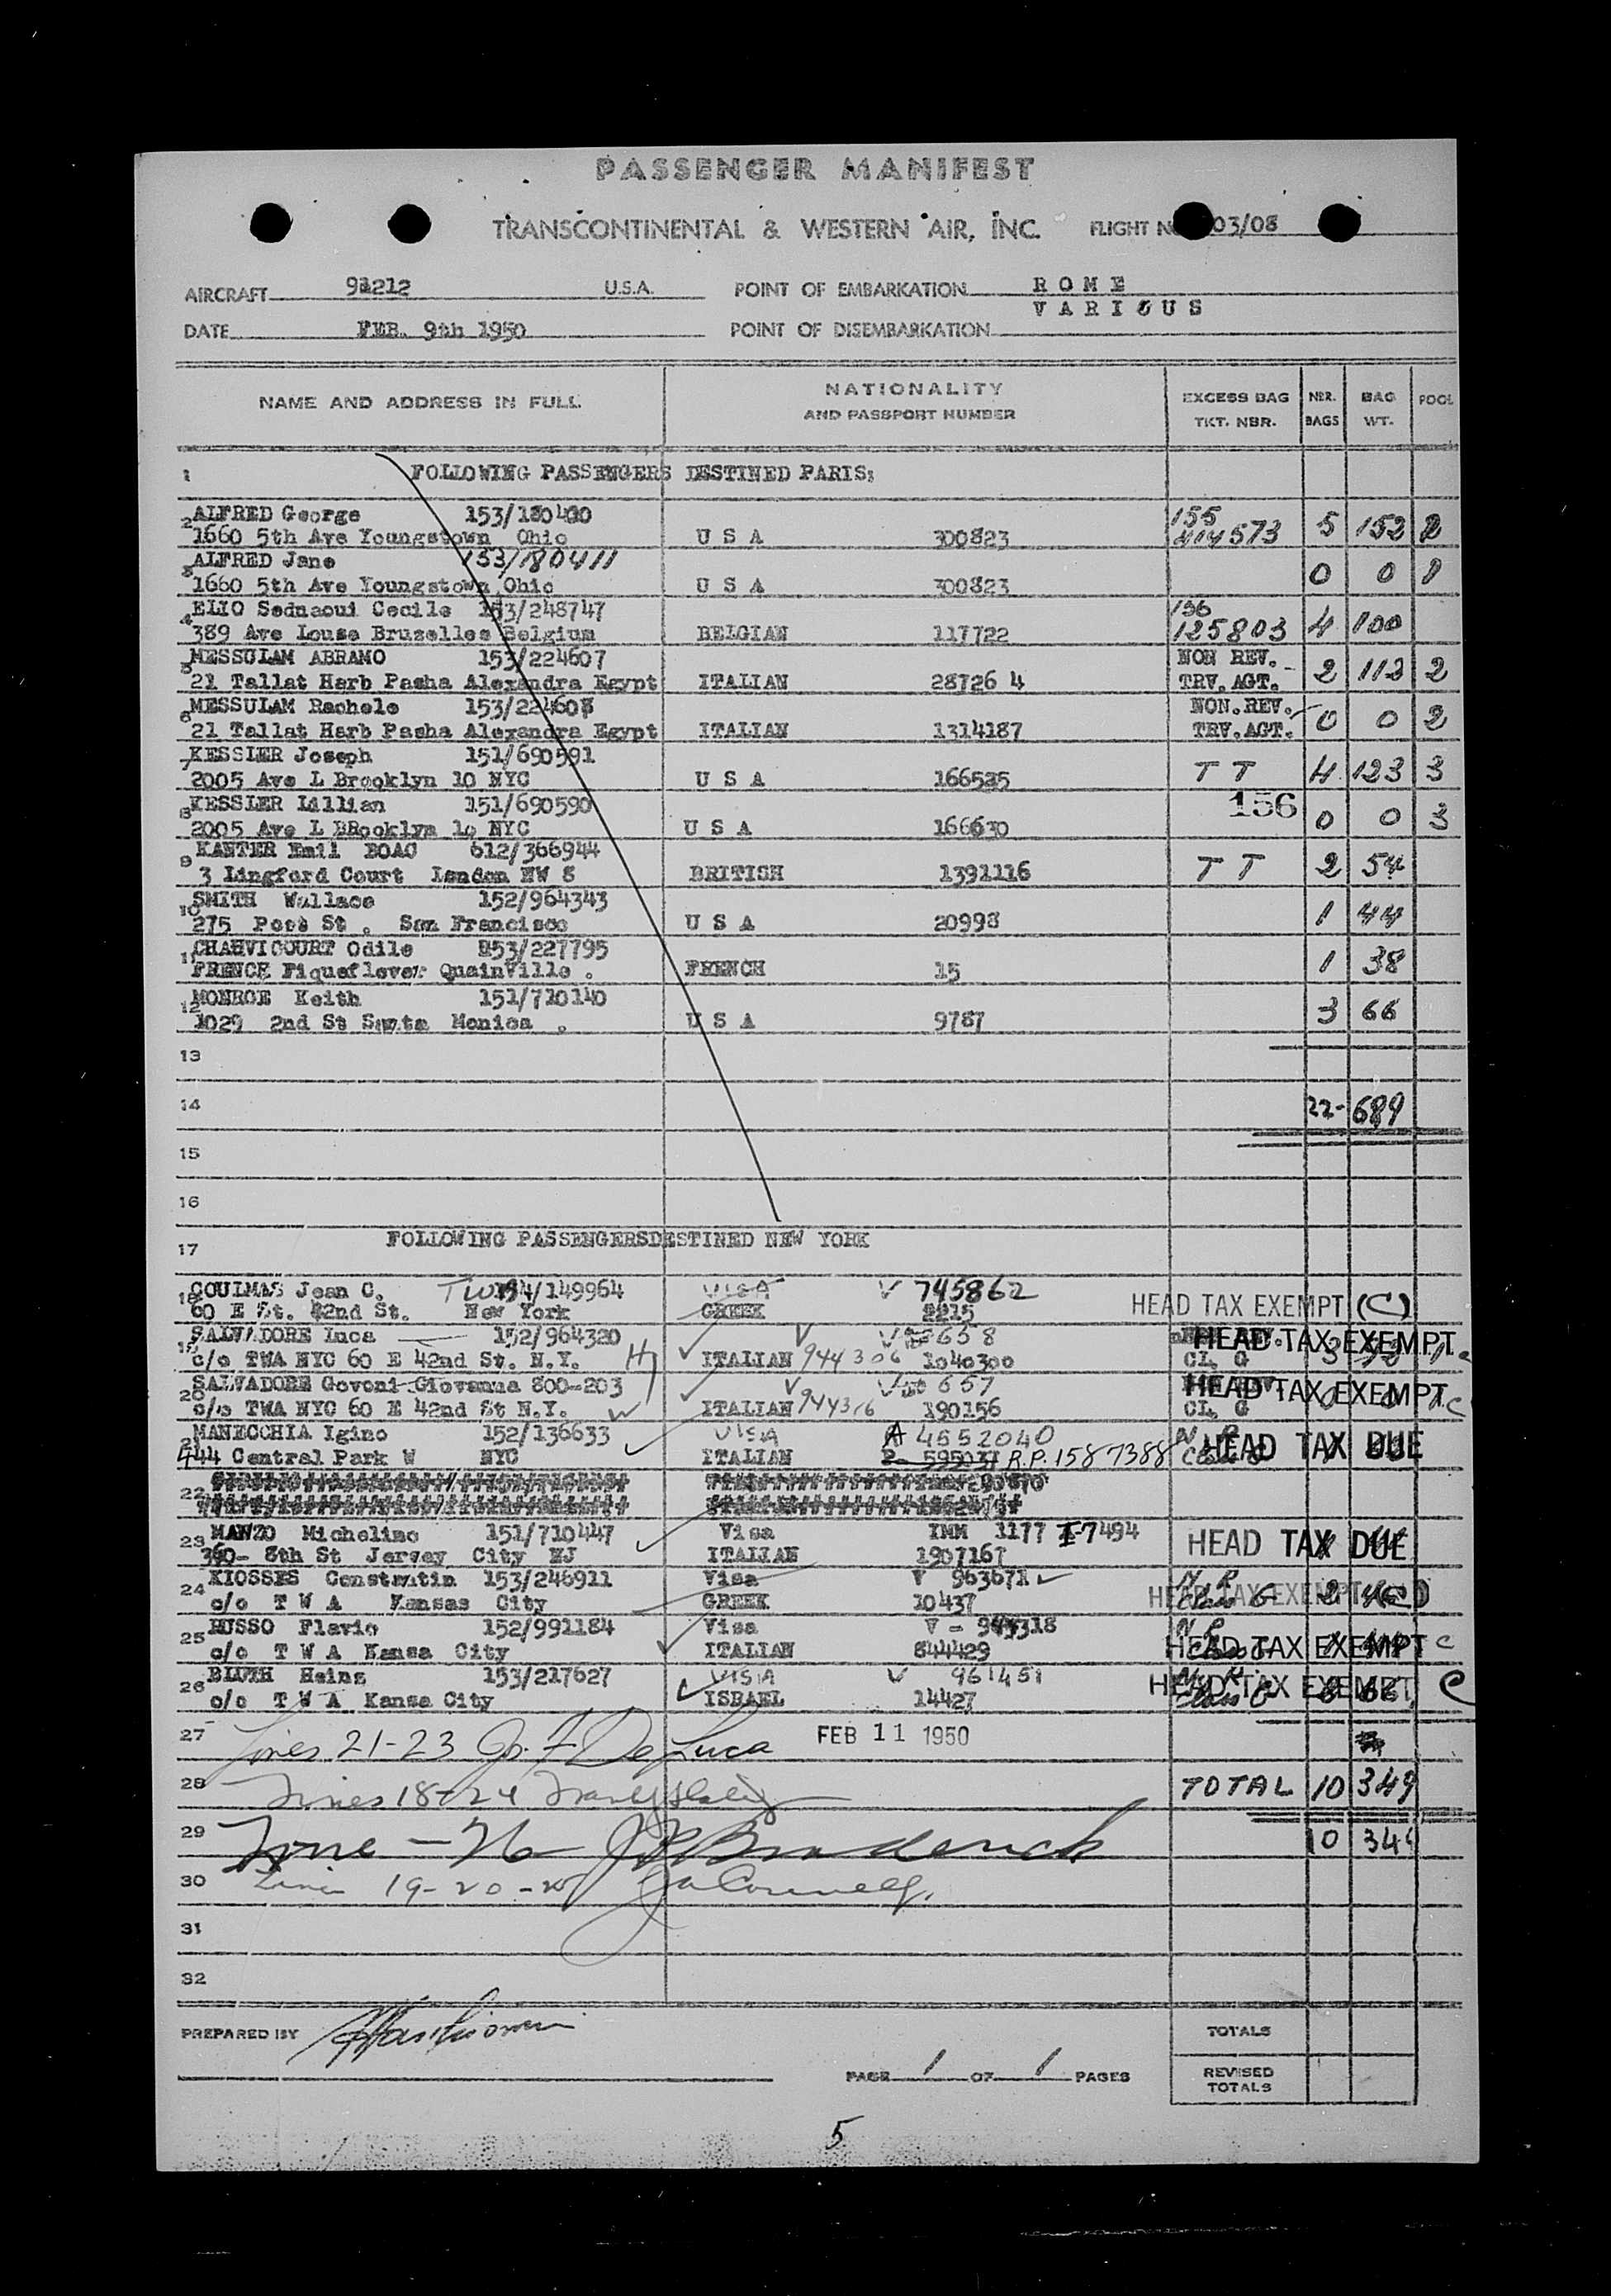 PASSENGER MANIFEST
TRANSCONTINENTAL & WESTERN AIR, INC. FLIGHT N 03/08
AIRCRAFT 91212 U.S.A. POINT OF EMBARKATION ROME
VARIOUS
DATE FEB. 9th 1950 POINT OF DISEMBARKATION
NAME AND ADDRESS IN FULL NATIONALITY AND PASSPORT NUMBER EXCESS BAG TKT. NBR. NBR. BAGS BAG WT. POOL
1 FOLLOWING PASSENGERS DESTINED PARIS:
2 ALFRED George 153/180400 155
1660 5th Ave Youngstown Ohio U S A 300823 414573 5 152 2
3 ALFRED Jane 153/180411
1660 5th Ave Youngstown Ohio U S A 300823 0 0
4 ELIO Sednaoui Cecile 153/248747 156
389 Ave Louse Bruzelles Belgium BELGIAN 117722 125803 4 100
5 MESSULAM ABRAMO 153/224607 NON REV.
21 Tallat Harb Pasha Alexandra Egypt ITALIAN 28726 4 TRV. AGT. 2 113 2
6 MESSULAM Rachele 153/224608 NON.REV.
21 Tallat Harb Pasha Alexandra Egypt ITALIAN 1314187 TRV. AGT. 0 0 2
7 KESSLER Joseph 151/690591
2005 Ave L Brooklyn 10 NYC U S A 166525 T T 4 123 3
8 KESSLER Lillian 151/690590 156
2005 Ave L BRooklyn 10 NYC U S A 166630 0 0 3
9 KANTER Emil BOAC 612/366944
3 Lingford Court London NW 8 BRITISH 1391116 T T 2 54
10 SMITH Wallace 152/964343
275 Post St . San Francisco U S A 20998 1 44
11 CHAHVICOURT Odile 153/227795
FRENCE Fiqueflever QuainVille . FRENCH 15 1 38
12 MONROE Keith 151/710140
1029 2nd St Santa Monica . U S A 9787 3 66
13
14 22- 689
15
16
17 FOLLOWING PASSENGERSDESTINED NEW YORK
18 COULMAS Jean C. TWA 154/149964 VISA V 745862
60 E St. 42nd St. New York GREEK 2215 HEAD TAX EXEMPT (C)
19 SALVADORE Luca 152/964320 V 658 HEAD TAX EXEMPT
c/o TWA NYC 60 E 42nd St. N.Y. ITALIAN 944306 1040300 CL. G
20 SALVADORE Govoni-Giovanna 800-203 V 657 HEAD TAX EXEMPT
c/o TWA NYC 60 E 42nd St N.Y. ITALIAN 944316 190156 CL. G
21 MANECCHIA Igino 152/136633 VISA A 4552040 HEAD TAX DUE
444 Central Park W NYC ITALIAN R.P. 1587388
22
23 MANZO Michelino 151/710447 Visa IMM 1177 I-7494 HEAD TAX DUE
360- 8th St Jersey City NJ ITALIAN 1907167
24 KIOSSES Constantin 153/246911 Visa V 963671
c/o T W A Kansas City GREEK 10437 HEAD TAX EXEMPT (C)
25 RUSSO Flavio 152/991184 Visa V - 944318
c/o T W A Kansa City ITALIAN 844429 HEAD TAX EXEMPT C
26 BLUTH Heinz 153/217627 VISA V 961451
c/o T W A Kansa City ISRAEL 14427 HEAD TAX EXEMPT C
27 Lines 21-23 Jo. F De Luca FEB 11 1950
28 Lines 18-24 TOTAL 10 349
29 Line - 26 J P Broderick 10 34
30 Line 19-20-25
31
32
PREPARED BY TOTALS
PAGE 1 OF 1 PAGES REVISED TOTALS
5